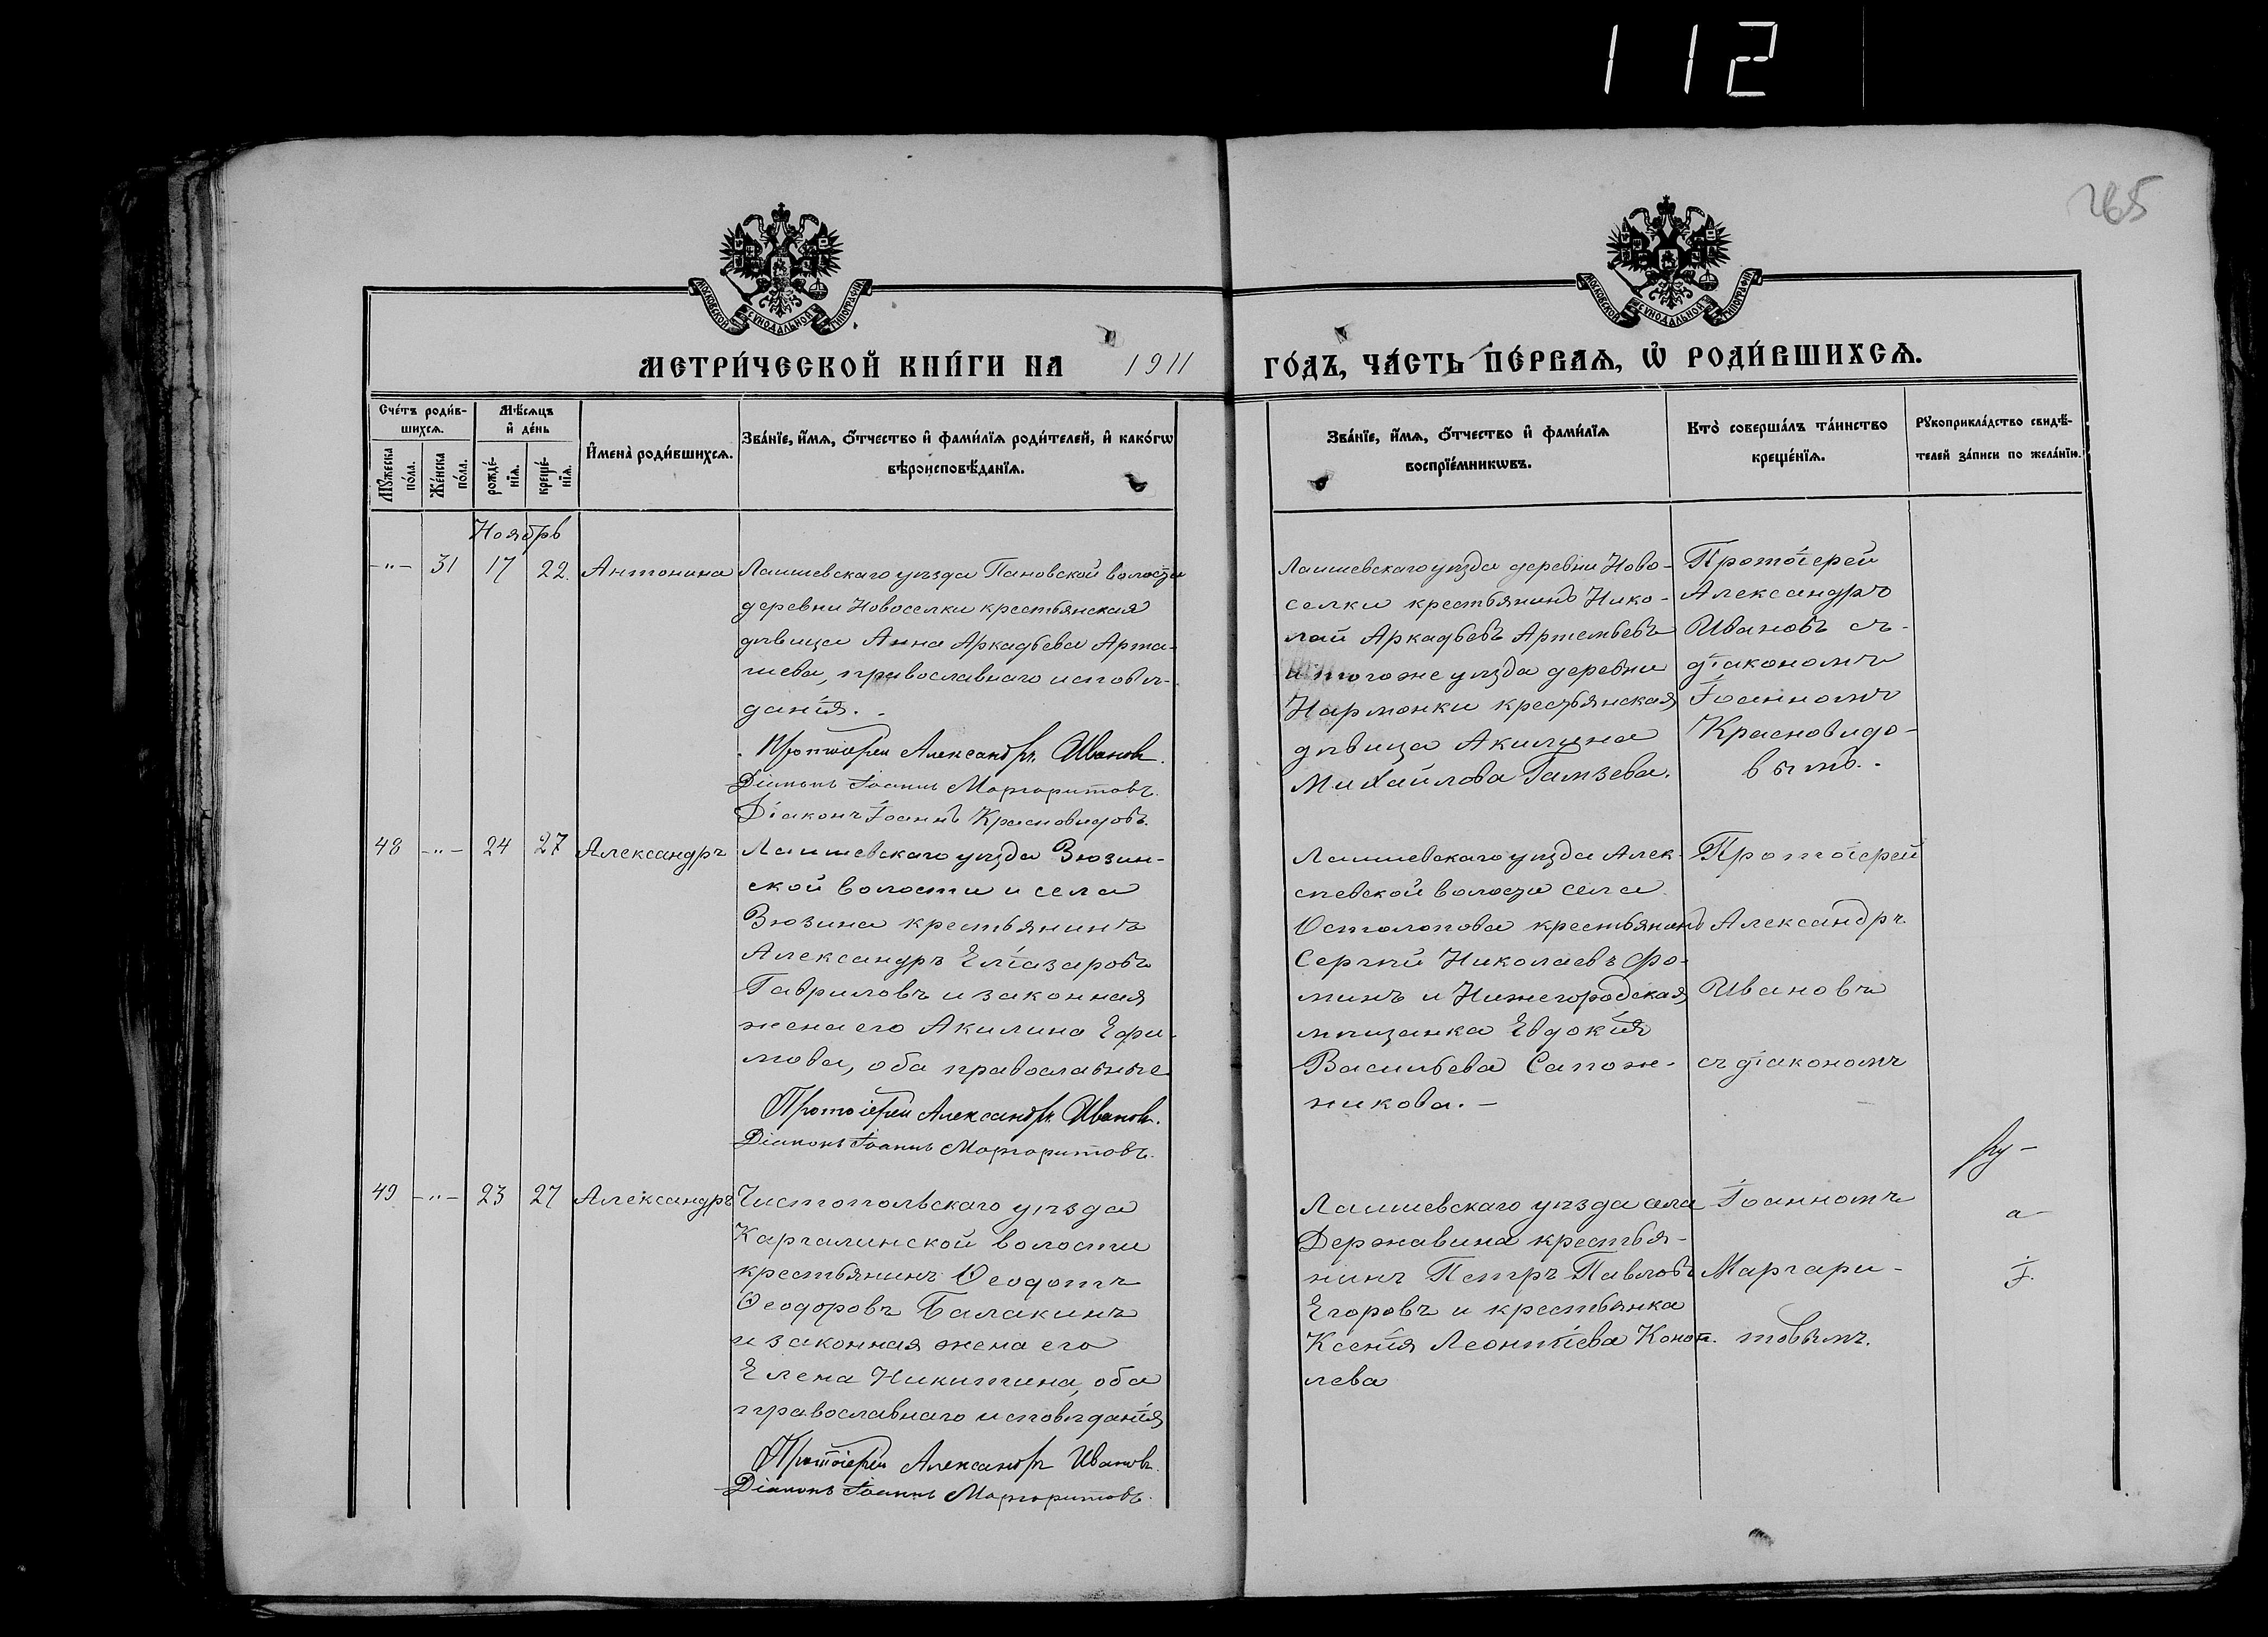 112
265
МОСКОВСКОЙ СѴНОДАЛЬНОЙ ТИПОГРАФІИ
МОСКОВСКОЙ СѴНОДАЛЬНОЙ ТИПОГРАФІИ
МЕТРИ́ЧЕСКОЙ КНИ́ГИ НА 1911 ГО́ДЪ, ЧА́СТЬ ПЕ́РВАѦ, Ѡ҆ РОДИ́ВШИХСѦ.
Сче́тъ роди́в-
шихсѧ.
Мꙋ́жеска по́ла.
Же́нска по́ла.
Мѣ́сѧцъ
и҆ де́нь
рожде́-
нїѧ.
креще́-
нїѧ.
И҆мена̀ роди́вшихсѧ.
Зва́нїе, и҆́мѧ, ѻ҆́тчество и҆ фами́лїѧ роди́телей, и҆ како́гѡ
вѣроисповѣ́данїѧ.
Зва́нїе, и҆́мѧ, ѻ҆́тчество и҆ фами́лїѧ
воспрїе́мникѡвъ.
Кто̀ соверша́лъ та́инство
креще́нїѧ.
Рꙋкоприкла́дство свидѣ́-
телей за́писи по жела́нїю.
Ноябрь
-"- 31 17 22. Антонина
Лаишевскаго уѣзда Пановской волости
деревни Новоселки крестьянская
дѣвица Анна Аркадьева Арта-
шева, православнаго исповѣ-
данія.
Протоіерей Александръ Ивановъ.
Діаконъ Іоаннъ Маргаритовъ.
Діаконъ Іоаннъ Красновидовъ.
Лаишевскаго уѣзда деревни Ново-
селки крестьянинъ Нико-
лай Аркадьевъ Артемьевъ
и того же уѣзда деревни
Нармонки крестьянская
дѣвица Акилина
Михайлова Гамзева.
Протоіерей
Александръ
Ивановъ съ
діакономъ
Іоанномъ
Красновидо-
вымъ.
48 -"- 24 27 Александръ
Лаишевскаго уѣзда Вюзин-
ской волости и села
Вюзина крестьянинъ
Александръ Еліазаровъ
Гавриловъ и законная
жена его Акилина Ефи-
мова, оба православные
Протоіерей Александръ Ивановъ.
Діаконъ Іоаннъ Маргаритовъ.
Лаишевскаго уѣзда Алек-
сѣевской волости села
Остолопова крестьянинъ
Сергѣй Николаевъ Фо-
минъ и Нижегородская
мѣщанка Евдокія
Васильева Сапож-
никова. -
Протоіерей
Александръ
Ивановъ
съ діакономъ
49 -"- 23 27 Александръ
Чистопольскаго уѣзда
Каргалинской волости
крестьянинъ Ѳеодотъ
Ѳеодоровъ Балакинъ
и законная жена его
Елена Никитина, оба
православнаго исповѣданія
Протоіерей Александръ Ивановъ.
Діаконъ Іоаннъ Маргаритовъ.
Лаишевскаго уѣзда села
Державина крестья-
нинъ Петръ Павловъ
Егоровъ и крестьянка
Ксенія Леонтіева Коноп-
лева
Іоанномъ
Маргари-
товымъ.
ру-
а
І.